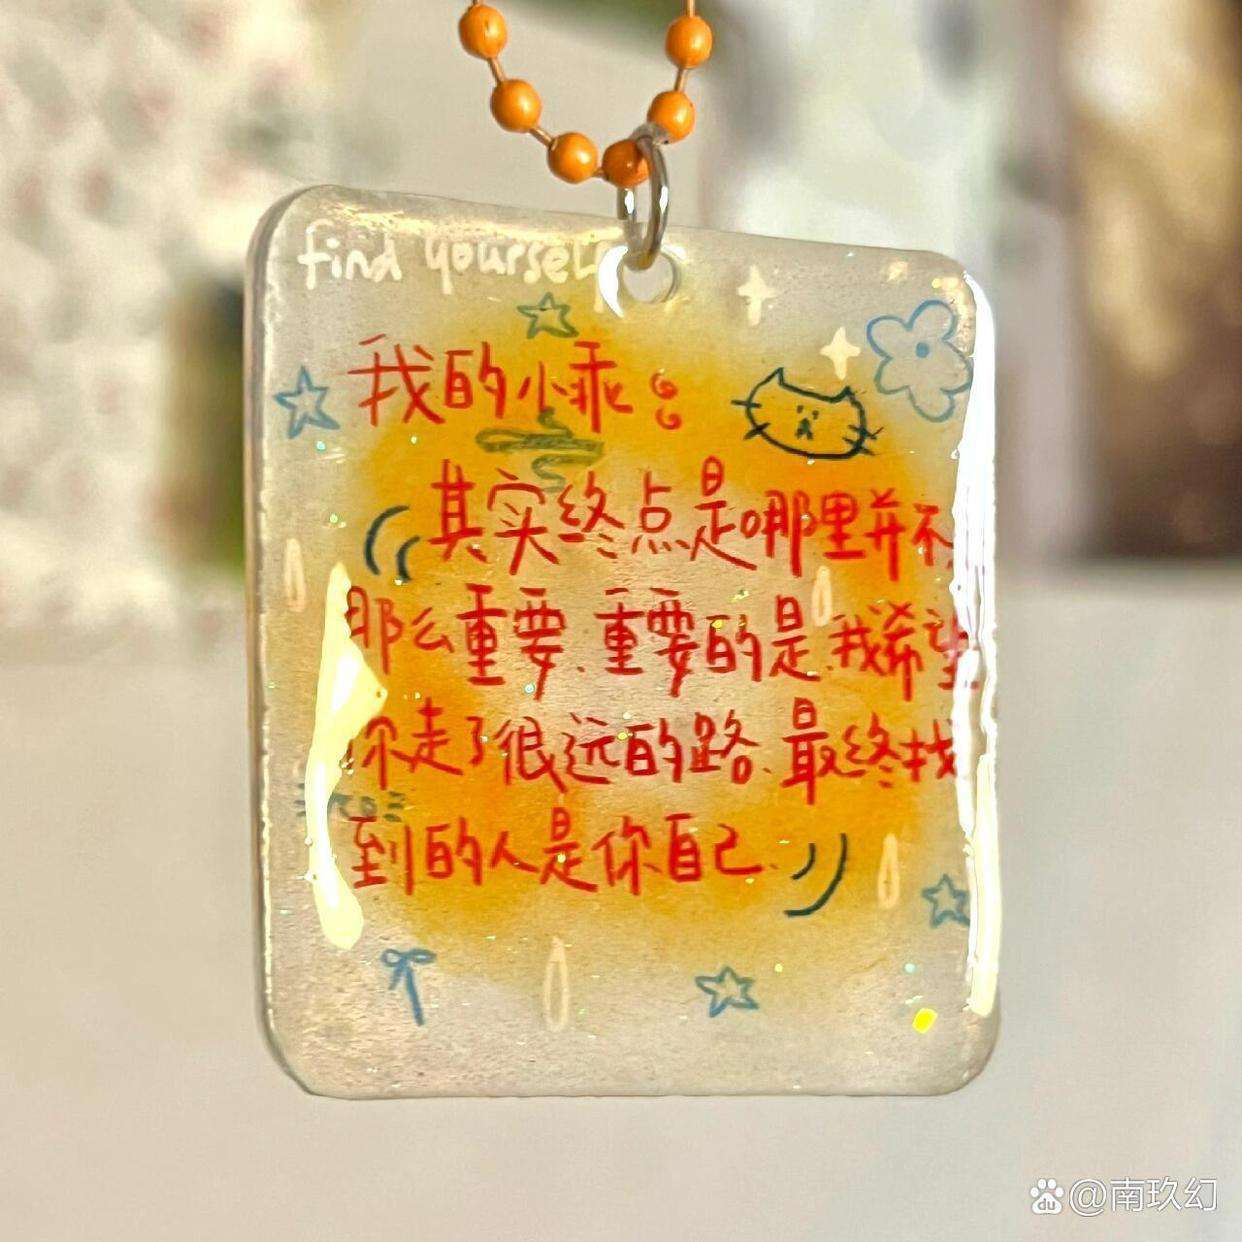 find yourself
我的小乖：
其实终点是哪里并不
那么重要、重要的是、我希望
你走了很远的路、最终找
到的人是你自己、
du @南玖幻